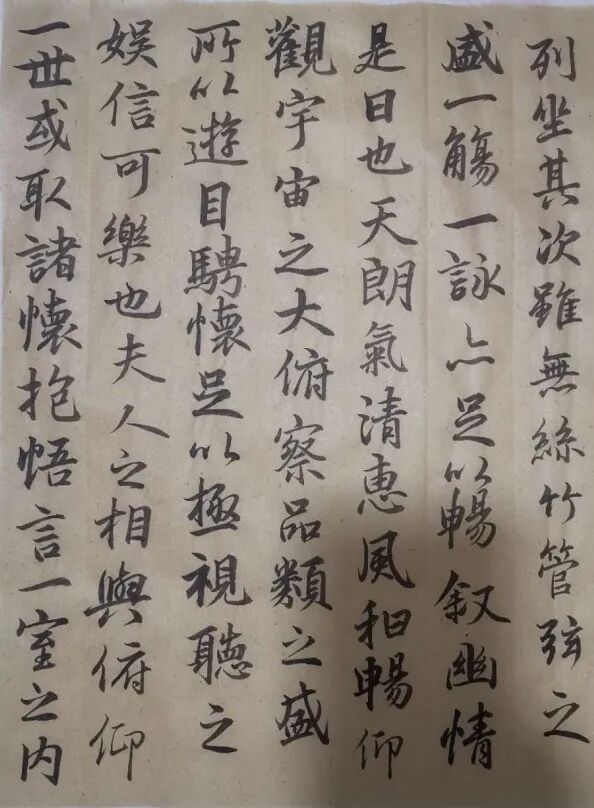 列坐其次雖無絲竹管弦之
盛一觴一詠亦足以暢叙幽情
是日也天朗氣清惠風和暢仰
觀宇宙之大俯察品類之盛
所以遊目騁懷足以極視聽之
娱信可樂也夫人之相與俯仰
一世或取諸懷抱悟言一室之内